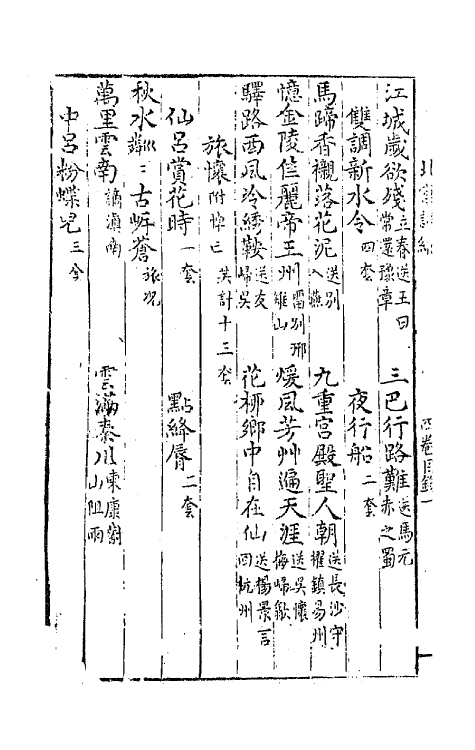 江城歲欲殘 立春送王日常還豫章 三巴行路難 送馬元赤之蜀
雙調新水令 四套 夜行船 二套
馬蹄香襯落花泥 送別入燕 九重宮殿聖人朝 送長沙守擢鎮易州
憶金陵佳麗帝王州 留別邢雉山 煖風芳艸遍天涯 送吳懷梅歸歙
驛路西風冷綉鞍 送友歸吳 花柳鄉中自在仙 送楊景言回杭州
旅懷 附悼亡 共計十三套
仙呂賞花時 一套 點絳唇 二套
秋水粼〻古岍蒼 旅况
萬里雲南 謫滇南 雲滿秦川 東康 山阻雨
中呂粉蝶兒 三套
四卷目錄